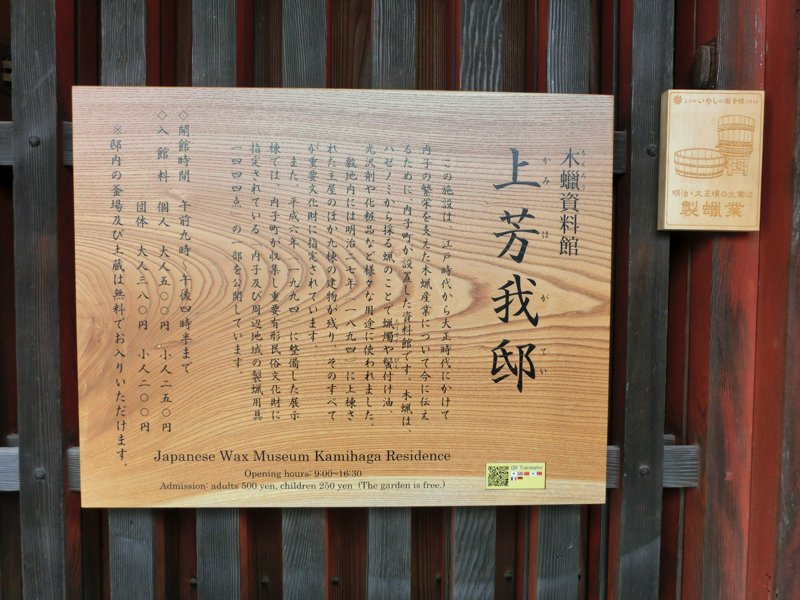 もくろう
木蠟資料館
かみ は が てい
上芳我邸
この施設は、江戸時代から大正時代にかけて
内子の繁栄を支えた木蠟産業について今に伝え
るために、内子町が設置した資料館です。木蠟は、
ハゼノミから採る蠟のことで蠟燭や鬢付け油、
光沢剤や化粧品など様々な用途に使われました。
敷地内には明治二七年(一八九四)に上棟さ
れた主屋のほか九棟の建物が残り、そのすべて
が重要文化財に指定されています。
また、平成六年(一九九四)に整備した展示
棟では、内子町が収集し重要有形民俗文化財に
指定されている「内子及び周辺地域の製蠟用具
一四四四点」の一部を公開しています。
◇開館時間 午前九時〜午後四時半まで
◇入館料 個人 大人五〇〇円 小人二五〇円
団体 大人三八〇円 小人二〇〇円
※邸内の釜場及び土蔵は無料でお入りいただけます。
Japanese Wax Museum Kamihaga Residence
Opening hours: 9:00~16:30
Admission: adults 500 yen, children 250 yen (The garden is free.)
QR Translator
明治・大正頃の生業は
製蠟業